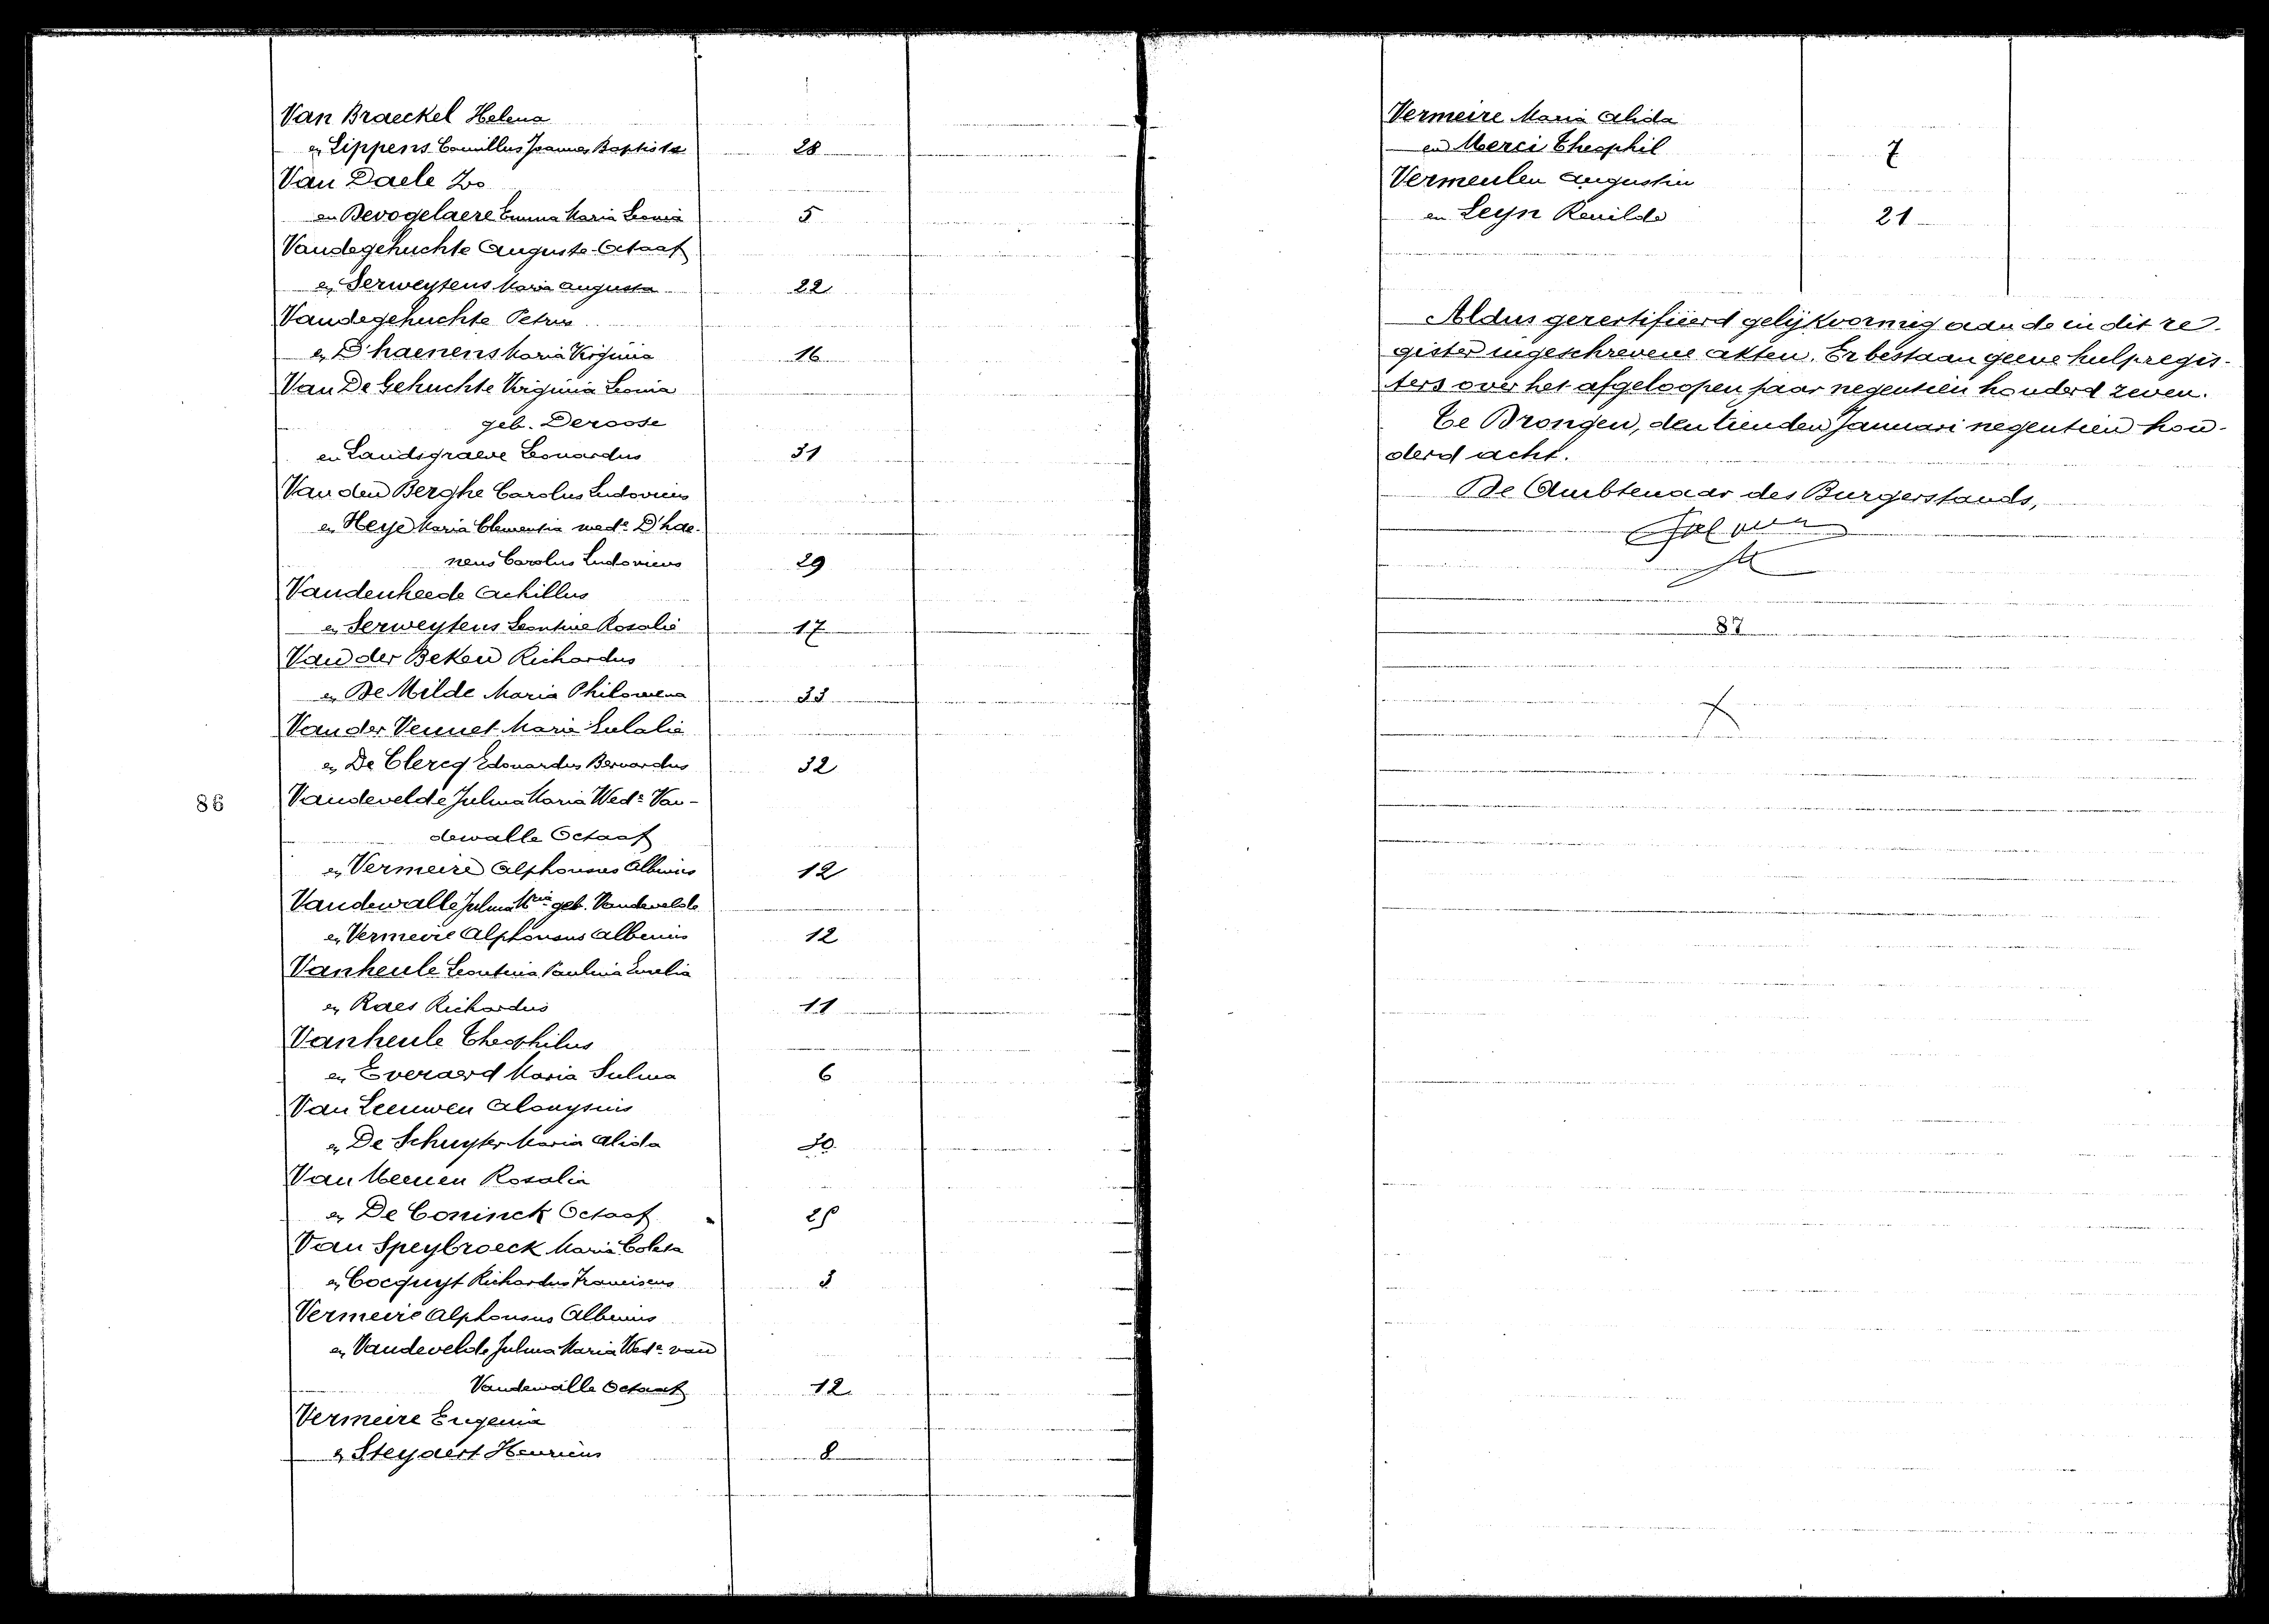 Van Braeckel Helena
en Lippens Camillus Joannes Baptista 28
Van Daele Ivo
en Devogelaere Emma Maria Leonia 5
Vandegehuchte Auguste Octaaf
en Serweytens Maria Augusta 22
Vandegehuchte Petrus
en D'haenens Maria Virginia 16
Van De Gehuchte Virginia Leonia
geb. Deroose
en Landsgraeve Leonardus 31
Van den Berghe Carolus Ludovicus
en Heye Maria Clementia wed.e D'hae-
nens Carolus Ludovicus 29
Vandenheede Achillus
en Serweytens Leontine Rosalie 17
Van der Beken Richardus
en De Milde Maria Philomena 33
Van der Vennet Marie Eulalie
en De Clercq Edouardus Bernardus 32
86
Vandevelde Julma Maria Wed.e Van-
dewalle Octaaf
en Vermeire Alphonsus Albinus 12
Vandewalle Julma Mria geb. Vandevelde
en Vermeire Alphonsus Albinus 12
Vanheule Leontina Paulina Emelia
en Raes Richardus 11
Vanheule Theophilus
en Everaerd Maria Sulma 6
Van Leeuwen Aloysius
en De Schuyter Maria Alida 30
Van Meenen Rosalia
en De Coninck Octaaf 25
Van Speybroeck Maria Coleta
en Cocquyt Richardus Franciscus 3
Vermeire Alphonsus Albinus
en Vandevelde Julma Maria Wed.e van
Vandewalle Octaaf 12
Vermeire Eugenia
en Steyaert Henricus 8
Vermeire Maria Alida
en Merci Theophil 7
Vermeulen Augustin
en Leyn Renilde 21
Aldus gecertifieerd gelijkvormig aan de in dit re-
gister ingeschrevene akten. Er bestaan geene hulpregis-
ters over het afgeloopen jaar negentien honderd zeven.
Te Drongen, den tienden Januari negentien hon-
derd acht.
De Ambtenaar des Burgerstands,
87